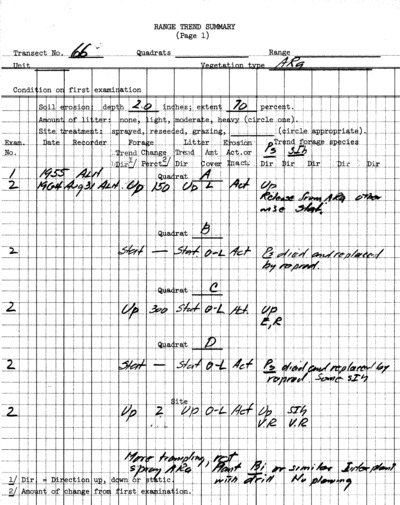 RANGE TREND SUMMARY
(Page 1)
Transect No. 66 Quadrats Range
Unit Vegetation type ARa
Condition on first examination
Soil erosion: depth 2.0 inches; extent 70 percent.
Amount of litter: none, light, moderate, heavy (circle one).
Site treatment: sprayed, reseeded, grazing, (circle appropriate).
Exam. Date Recorder Forage Litter Erosion Trend forage species
No. Trend Change Trend Amt Act.or Ps SIh
Dir 1/ Perct 2/ Dir Cover Inact. Dir Dir Dir Dir Dir
Quadrat A
1 1955 ALH
2 1964 Aug 31 ALH Up 150 Up L Act Up
Release from ARa other
wise Stat.
Quadrat B
2 Stat — Stat O-L Act Ps died and replaced
by reprod.
Quadrat C
2 Up 300 Stat O-L Act Up
E,R
Quadrat D
2 Stat — Stat O-L Act Ps died and replaced by
reprod. Some SIh
Site
2 Up 2 Up O-L Act Up SIh
V.R V.R
More trampling, rest
spray ARa Plant Bi or similar Interplant
1/ Dir. = Direction up, down or static. with drill No plowing
2/ Amount of change from first examination.